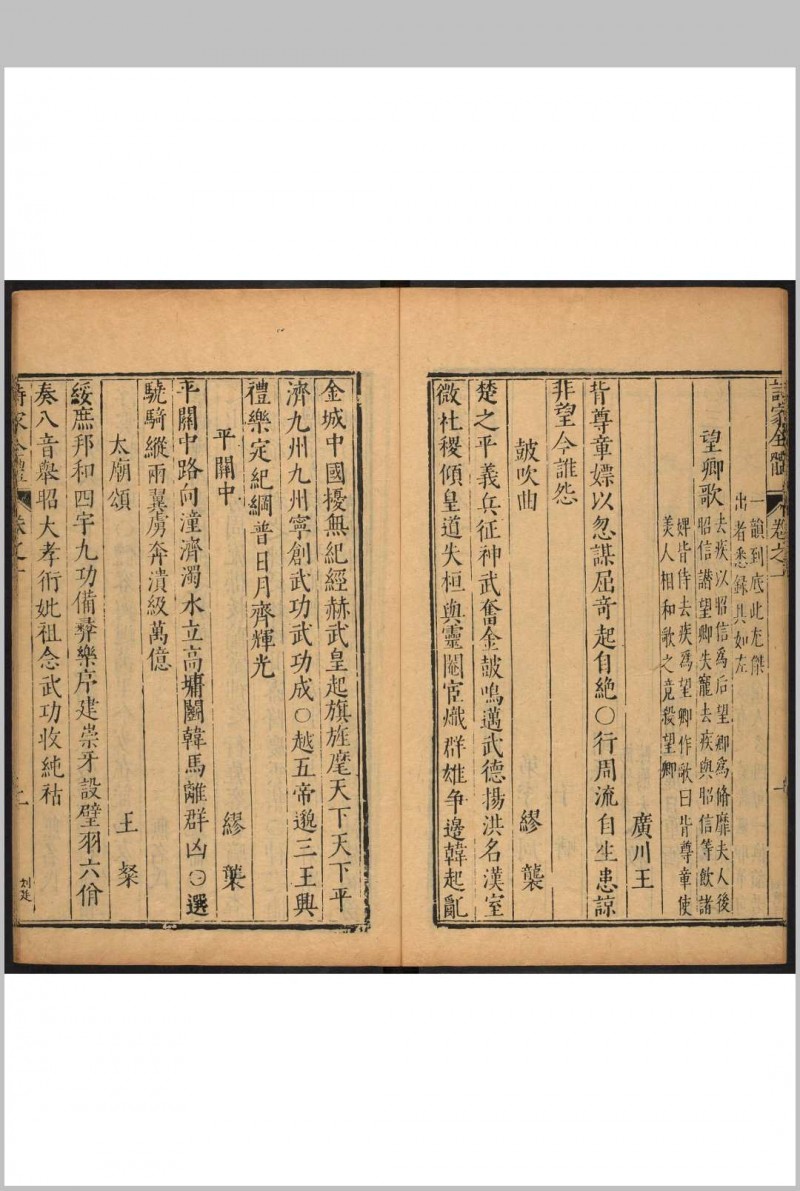 詩家全體
卷之一
一韻到底此尤傑
出者悉錄其如左
望卿歌
去疾以昭信為后望卿為脩靡夫人後
昭信譖望卿失寵去疾與昭信等飲諸
婢皆侍去疾為望卿作歌曰背尊章使
美人相和歌之竟殺望卿
廣川王
背尊章嫖以忽謀屈奇起自絕〇行周流自生患諒
非望今誰怨
鼓吹曲 繆襲
楚之平義兵征神武奮金鼓鳴邁武德揚洪名漢室
微社稷傾皇道失桓與靈閹宦熾群雄争邊韓起亂
金城中國擾無紀經赫武皇起旗旌麾天下天下平
濟九州九州寧創武功武功成〇越五帝邈三王興
禮樂定紀綱普日月齊輝光
平關中 繆襲
平關中路向潼濟濁水立高墉鬬韓馬離群凶〇選
驍騎縱兩翼虜奔潰級萬億
太廟頌 王粲
綏庶邦和四宇九功備彞樂序建崇牙設璧羽六佾
奏八音舉昭大孝衍妣祖念武功收純祜
詩家全體
卷之一